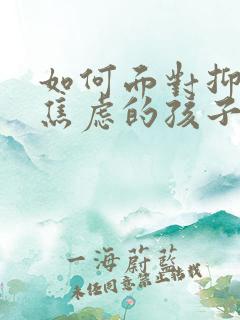 如何面對抑
焦虑的孩子
一海蔚藍
未经同意禁止转载